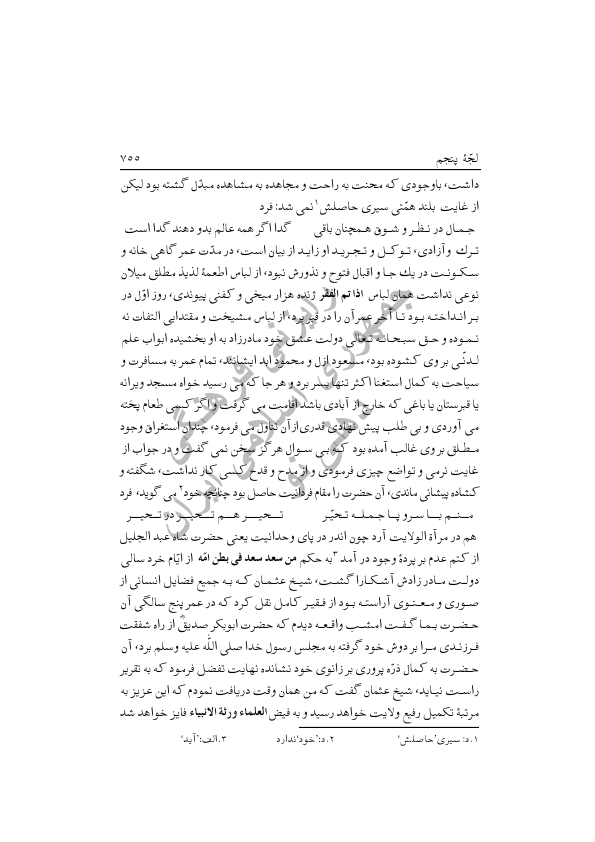 لجّهٔ پنجم ۷۵۵
داشت، باوجودی که محنت به راحت و مجاهده به مشاهده مبدّل گشته بود لیکن
از غایت بلند همّتی سیری حاصلش۱ نمی شد: فرد
جمال در نظر و شوق همچنان باقی گدا اگر همه عالم بدو دهند گدا است
ترك و آزادی، توکل و تجرید او زاید از بیان است، در مدّت عمر گاهی خانه و
سکونت در یك جا و اقبال فتوح و نذورش نبود، از لباس اطعمهٔ لذیذ مطلق میلان
نوعی نداشت همان لباس اذا تم الفقر ژنده هزار میخی و کفنی پیوندی، روز اوّل در
بر انداخته بود تا آخر عمر آن را در قبر برد، از لباس مشیخت و مقتدایی التفات نه
نموده و حق سبحانه تعالی دولت عشق خود مادرزاد به او بخشیده ابواب علم
لدنّی بر وی کشوده بود، مسعود ازل و محمود ابد ایشانند، تمام عمر به مسافرت و
سیاحت به کمال استغنا اکثر تنها بسر برد و هر جا که می رسید خواه مسجد ویرانه
یا قبرستان یا باغی که خارج از آبادی باشد اقامت می گرفت و اگر کسی طعام پخته
می آوردی و بی طلب پیش نهادی قدری از آن تناول می فرمود، چندان استغراق وجود
مطلق بر وی غالب آمده بود که بی سوال هرگز سخن نمی گفت و در جواب از
غایت نرمی و تواضع چیزی فرمودی و از مدح و قدح کسی کار نداشت، شگفته و
کشاده پیشانی ماندی، آن حضرت را مقام فردانیت حاصل بود چنانچه خود۲ می گوید، فرد
منم با سرو پا جمله تحیّر تحیر هم تحیر در تحیر
هم در مرآة الولایت آرد چون اندر در پای وحدانیت یعنی حضرت شاه عبد الجلیل
از کتم عدم بر پردهٔ وجود در آمد۳ به حکم من سعد سعد فی بطن امّه از ایّام خرد سالی
دولت مادر زادش آشکارا گشت، شیخ عثمان که به جمیع فضایل انسانی از
صوری و معنوی آراسته بود از فقیر کامل نقل کرد که در عمر پنج سالگی آن
حضرت بما گفت امشب واقعه دیدم که حضرت ابوبکر صدیقؓ از راه شفقت
فرزندی مرا بر دوش خود گرفته به مجلس رسول خدا صلی اللّٰه علیه وسلم برد، آن
حضرت به کمال ذرّه پروری بر زانوی خود نشانده نهایت تفضل فرمود که به تقریر
راست نیاید، شیخ عثمان گفت که من همان وقت دریافت نمودم که این عزیز به
مرتبهٔ تکمیل رفیع ولایت خواهد رسید و به فیض العلماء ورثة الانبیاء فایز خواهد شد
۱.د: سیری‘حاصلش‘ ۲.د:‘خود‘ندارد ۳.الف:‘آید‘